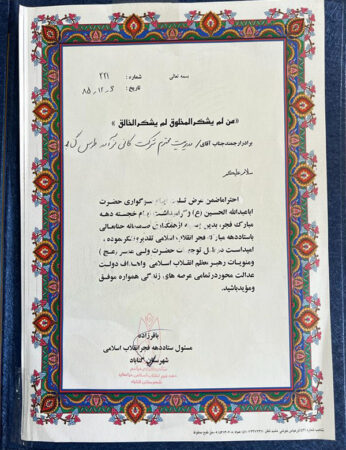 بسمه تعالی
شماره : ۲۲۱
تاریخ : ۸۵،۱۲،۶
«من لم یشکر المخلوق لم یشکر الخالق»
برادر ارجمند جناب آقای / مدیریت محترم شرکت کانی فرآیند طوس
سلام علیکم
احتراما ضمن عرض سوگواری حضرت
اباعبدالله الحسین (ع) و گرامیداشت ایام خجسته دهه
مبارک فجر، بدین وسیله از همکاری صمیمانه جنابعالی
با ستاد دهه مبارک فجر انقلاب اسلامی تقدیر و تشکر نموده ،
امید است در ظل توجهات حضرت ولی عصر (عج)
و منویات رهبر معظم انقلاب اسلامی و اهداف دولت
عدالت محور در تمامی عرصه های زندگی همواره موفق
و موید باشید.
باقرزاده
مسئول ستاد دهه فجر انقلاب اسلامی
شهرستان گناباد